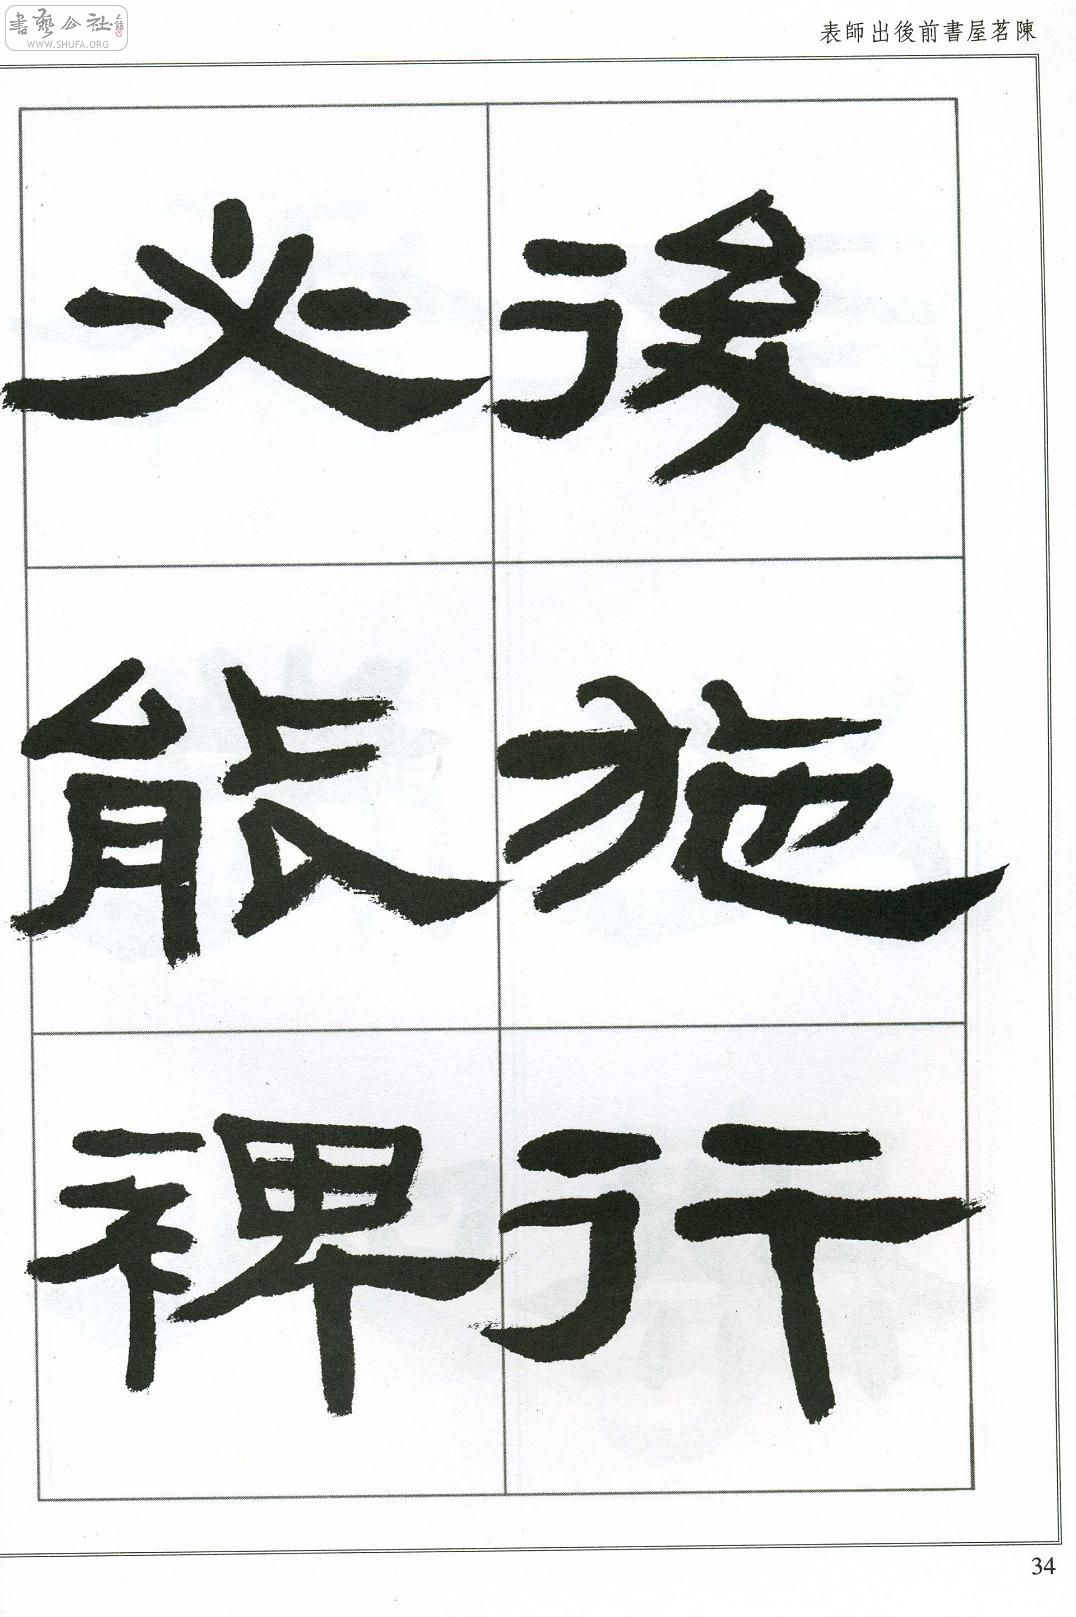 書藝公社
WWW.SHUFA.ORG
陳茗屋書前後出師表
後施行
必能裨
34